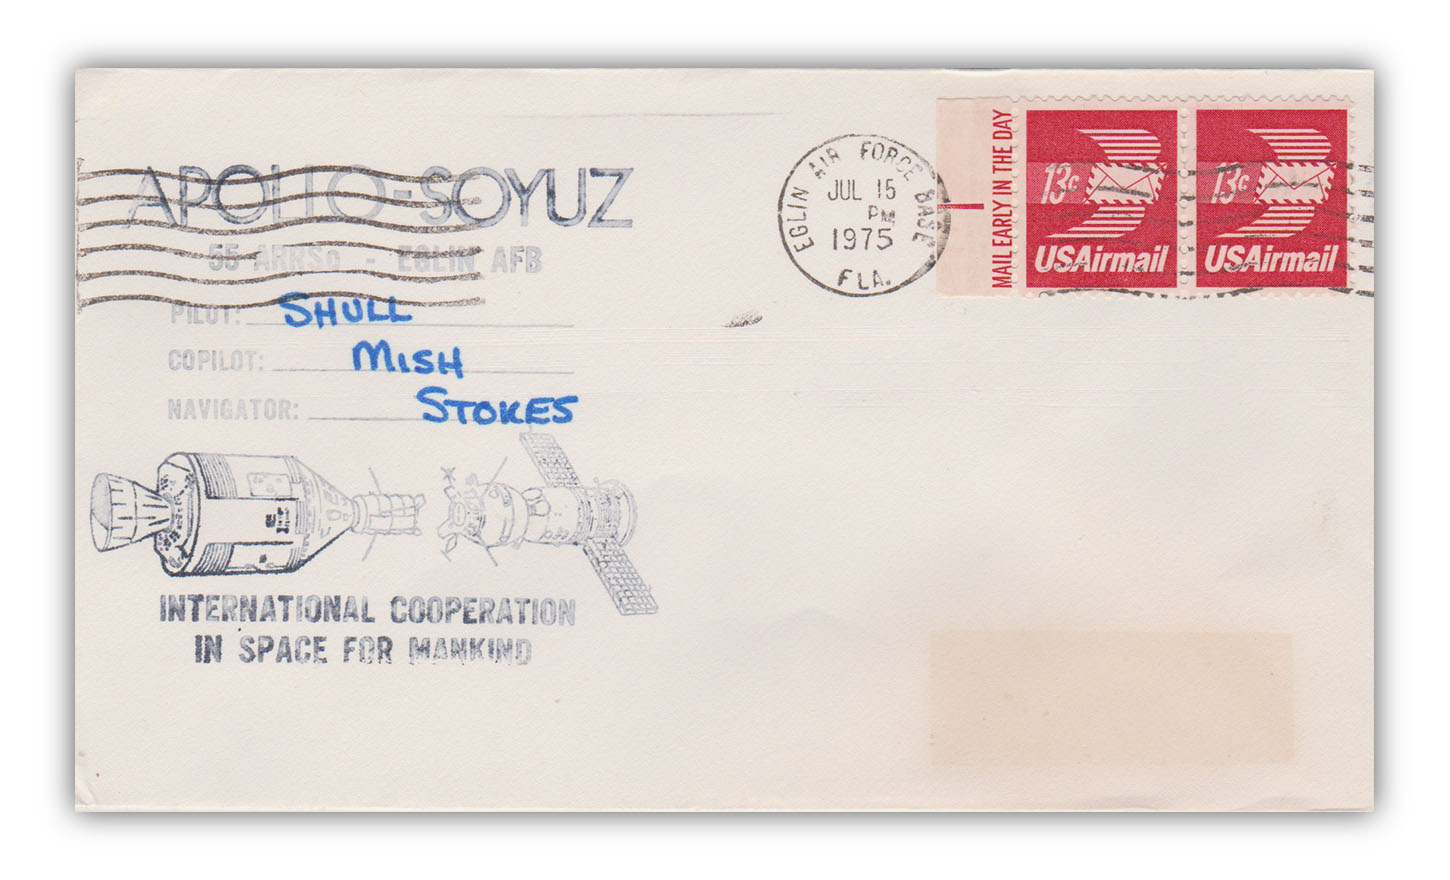 APOLLO-SOYUZ
55 ARRSq - EGLIN AFB
PILOT: SHULL
COPILOT: MISH
NAVIGATOR: STOKES
INTERNATIONAL COOPERATION
IN SPACE FOR MANKIND
EGLIN AIR FORCE BASE
JUL 15
PM
1975
FLA.
MAIL EARLY IN THE DAY
13c
USAirmail
13c
USAirmail